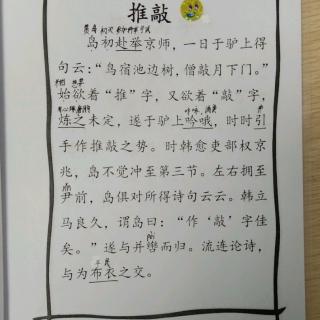 推敲
岛初赴举京师，一日于驴上得
句云：“鸟宿池边树，僧敲月下门。”
始欲着“推”字，又欲着“敲”字，
炼之未定，遂于驴上吟哦，时时引
手作推敲之势。时韩愈吏部权京
兆，岛不觉冲至第三节。左右拥至
尹前，岛俱对所得诗句云云。韩立
马良久，谓岛曰：“作‘敲’字佳
矣。”遂与并辔而归。流连论诗，
平民
与为布衣之交。